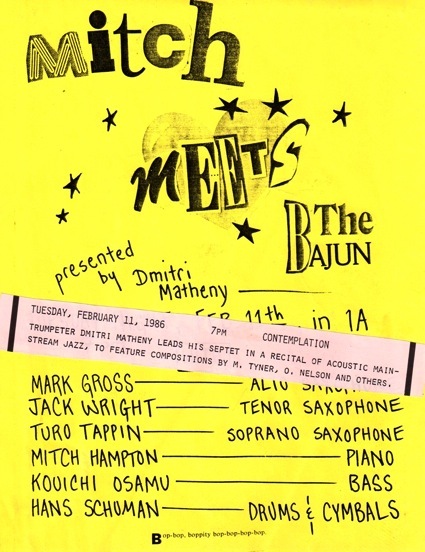 Mitch
MEETS
The
BAJUN
presented
by Dmitri
Matheny
FEB 11th, in 1A
TUESDAY, FEBRUARY 11, 1986 7PM CONTEMPLATION
TRUMPETER DMITRI MATHENY LEADS HIS SEPTET IN A RECITAL OF ACOUSTIC MAIN-
STREAM JAZZ, TO FEATURE COMPOSITIONS BY M. TYNER, O. NELSON AND OTHERS.
MARK GROSS ALTO SAXOPHONE
JACK WRIGHT TENOR SAXOPHONE
TURO TAPPIN SOPRANO SAXOPHONE
MITCH HAMPTON PIANO
KOUICHI OSAMU BASS
HANS SCHUMAN DRUMS & CYMBALS
Bop-bop, boppity bop-bop-bop-bop.